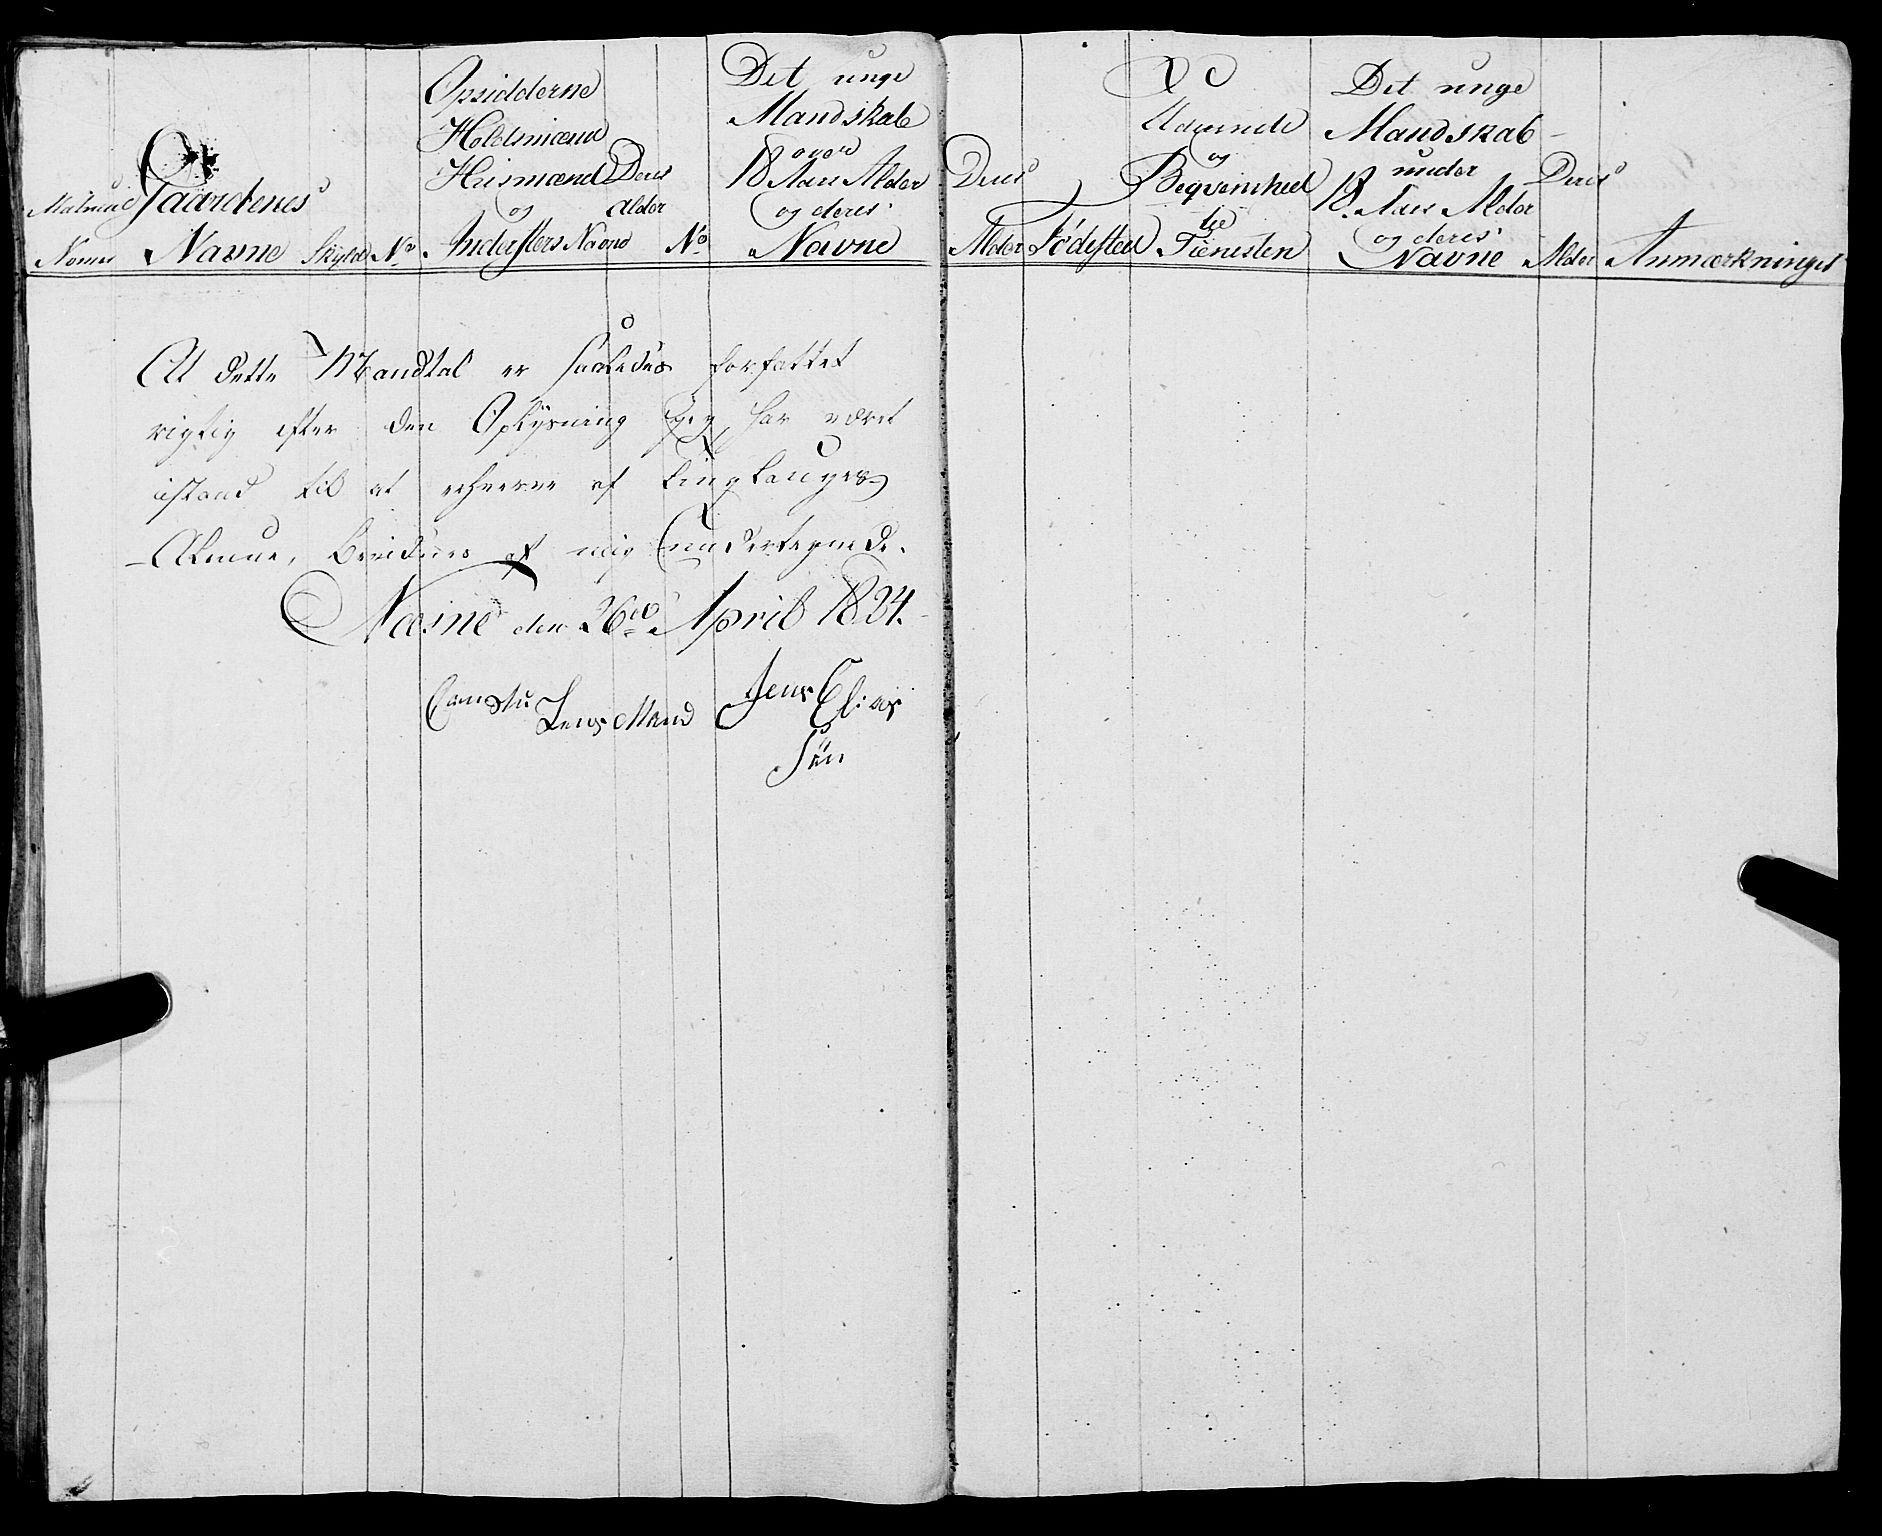 Matricul
Nomer
Gaardenes
Navne
Skyld
No
Opsidderne
Holdsmænd
Huusmænd
og
Indersters Navne
Deres
Alder
No
Det unge
Mandskab
over
18 Aars Alder
og deres
Navne
Deres
Alder
Fødested
og
Beqvemhed
til
Tienesten
Det unge
Mandskab
under
18 Aars Alder
og deres
Navne
Deres
Alder
Anmærkninger
At dette Mandtal er saaledes forfattet
rigtig efter den Oplysning jeg har været
istand til at erhverve af Tinglaugets
Almue, bevidnes af mig undertegnede.
Næsne den 26de April 1824.
Constu Lens Mand Jens Elias
Søn